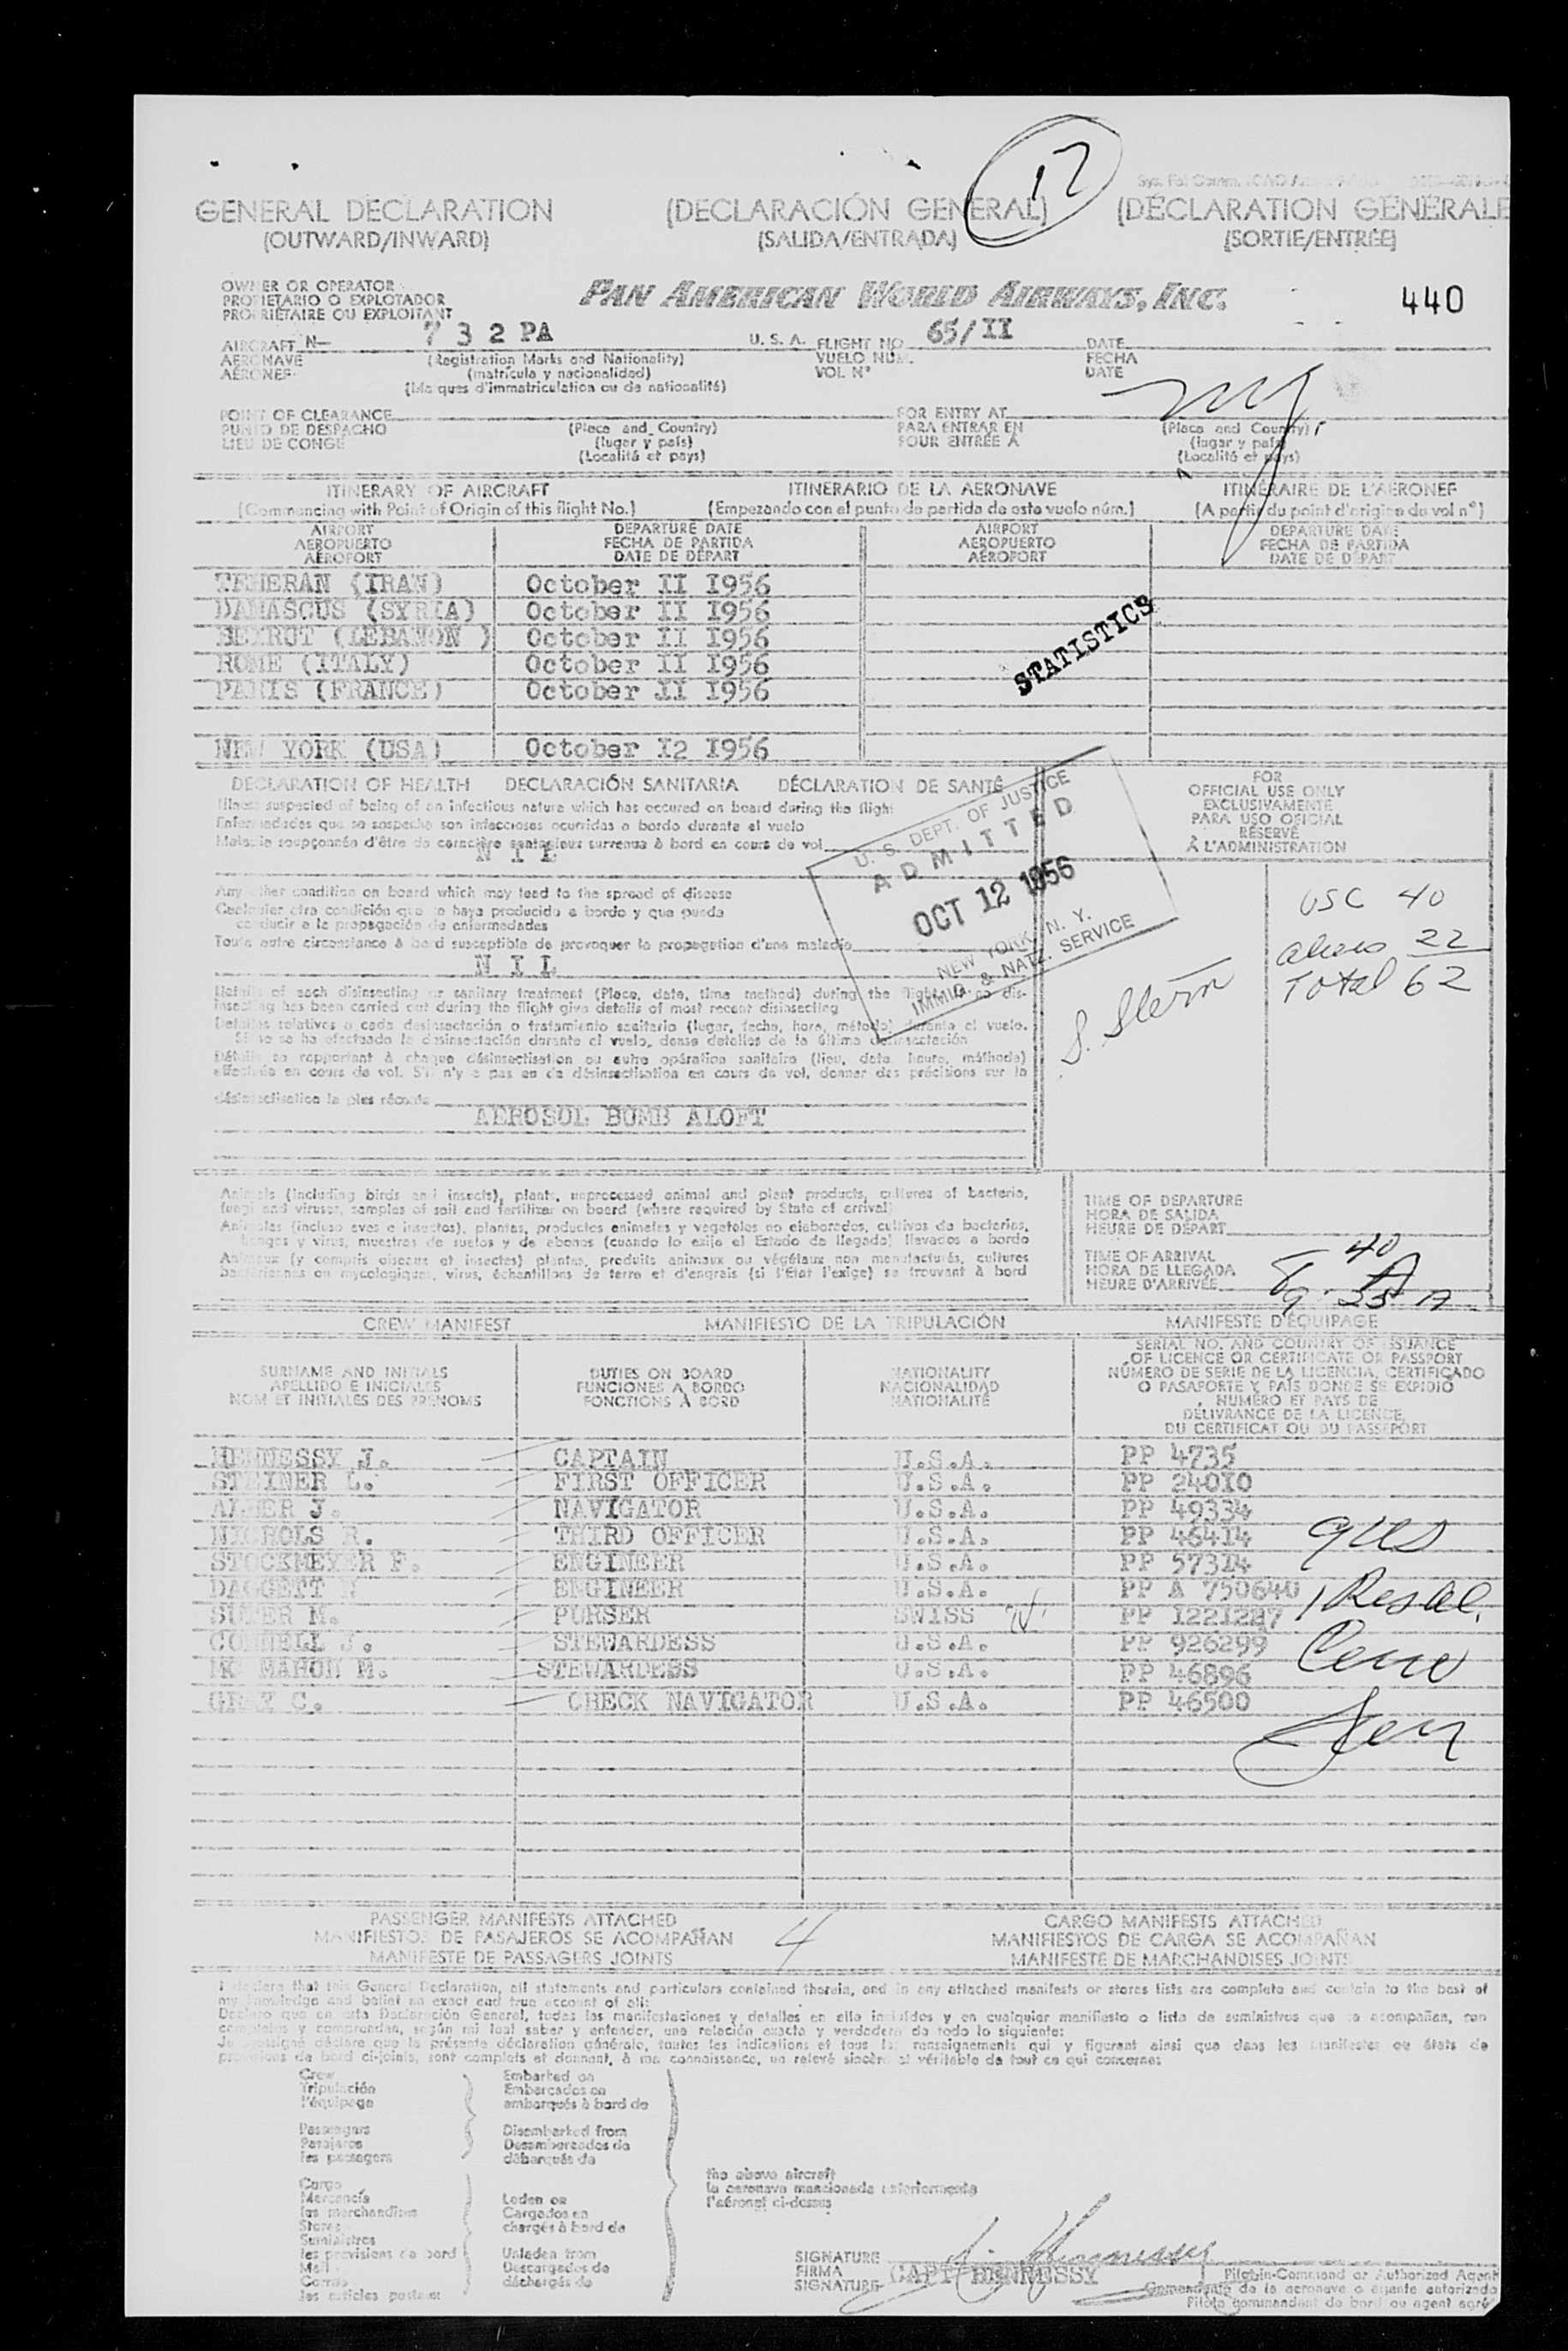 17
GENERAL DECLARATION (DECLARACIÓN GENERAL) (DÉCLARATION GÉNÉRALE
(OUTWARD/INWARD) (SALIDA/ENTRADA) (SORTIE/ENTRÉE)
OWNER OR OPERATOR
PROPIETARIO O EXPLOTADOR
PROPRIÉTAIRE OU EXPLOITANT
PAN AMERICAN WORLD AIRWAYS, INC. 440
AIRCRAFT N— 7 3 2 PA U. S. A. FLIGHT NO 65/II DATE
AERONAVE (Registration Marks and Nationality) VUELO NÚM. FECHA
AÉRONEF (matrícula y nacionalidad) VOL N° DATE
(Marques d'immatriculation ou de nationalité)
POINT OF CLEARANCE FOR ENTRY AT
PUNTO DE DESPACHO (Place and Country) PARA ENTRAR EN (Place and Country)
LIEU DE CONGÉ (lugar y país) POUR ENTRÉE À (lugar y país)
(Localité et pays) (Localité et pays)
ITINERARY OF AIRCRAFT ITINERARIO DE LA AERONAVE ITINÉRAIRE DE L'AÉRONEF
(Commencing with Point of Origin of this flight No.) (Empezando con el punto de partida de este vuelo núm.) (A partir du point d'origine du vol n°)
AIRPORT DEPARTURE DATE AIRPORT DEPARTURE DATE
AEROPUERTO FECHA DE PARTIDA AEROPUERTO FECHA DE PARTIDA
AÉROPORT DATE DE DÉPART AÉROPORT DATE DE DÉPART
TEHERAN (IRAN) October II I956
DAMASCUS (SYRIA) October II I956
BEYRUT (LEBANON ) October II I956
ROME (ITALY) October II I956
PARIS (FRANCE) October II I956
STATISTICS
NEW YORK (USA) October I2 I956
DECLARATION OF HEALTH DECLARACIÓN SANITARIA DÉCLARATION DE SANTÉ
Illness suspected of being of an infectious nature which has occured on board during the flight
Enfermedades que se sospecha son infecciosas ocurridas a bordo durante el vuelo
Maladie soupçonnée d'être de caractère contagieux survenue à bord en cours de vol
N I L
FOR
OFFICIAL USE ONLY
EXCLUSIVAMENTE
PARA USO OFICIAL
RÉSERVÉ
À L'ADMINISTRATION
U. S. DEPT. OF JUSTICE
ADMITTED
OCT 12 1956
NEW YORK, N. Y.
IMMIG. & NATZ. SERVICE
USC 40
aliens 22
Total 62
S. Stern
Any other condition on board which may lead to the spread of disease
Cualquier otra condición que se haya producido a bordo y que pueda
conducir a la propagación de enfermedades
Toute autre circonstance à bord susceptible de provoquer la propagation d'une maladie
N I L
Details of each disinsecting or sanitary treatment (Place, date, time method) during the flight. If no dis-
insecting has been carried out during the flight give details of most recent disinsecting
Detalles relativos a cada desinsectación o tratamiento sanitario (lugar, fecha, hora, método) durante el vuelo.
Si no se ha efectuado la desinsectación durante el vuelo, dense detalles de la última desinsectación
Détails se rapportant à chaque désinsectisation ou autre opération sanitaire (lieu, date, heure, méthode)
effectuée en cours de vol. S'il n'y a pas eu de désinsectisation en cours de vol, donner des précisions sur la
désinsectisation la plus récente
AEROSOL BOMB ALOFT
Animals (including birds and insects), plants, unprocessed animal and plant products, cultures of bacteria,
fungi and viruses, samples of soil and fertilizer on board (where required by State of arrival)
Animales (incluso aves e insectos), plantas, productos animales y vegetales no elaborados, cultivos de bacterias,
hongos y virus, muestras de suelos y de abonos (cuando lo exija el Estado de llegada) llevados a bordo
Animaux (y compris oiseaux et insectes) plantes, produits animaux ou végétaux non manufacturés, cultures
bactériennes ou mycologiques, virus, échantillons de terre et d'engrais (si l'État l'exige) se trouvant à bord
TIME OF DEPARTURE
HORA DE SALIDA
HEURE DE DÉPART
TIME OF ARRIVAL 8 40 A
HORA DE LLEGADA
HEURE D'ARRIVÉE 9 25 A
CREW MANIFEST MANIFIESTO DE LA TRIPULACIÓN MANIFESTE D'ÉQUIPAGE
SURNAME AND INITIALS DUTIES ON BOARD NATIONALITY
APELLIDO E INICIALES FUNCIONES A BORDO NACIONALIDAD
NOM ET INITIALES DES PRÉNOMS FONCTIONS À BORD NATIONALITÉ
SERIAL NO. AND COUNTRY OF ISSUANCE
OF LICENCE OR CERTIFICATE OR PASSPORT
NÚMERO DE SERIE DE LA LICENCIA, CERTIFICADO
O PASAPORTE Y PAÍS DONDE SE EXPIDIÓ
NUMÉRO ET PAYS DE
DÉLIVRANCE DE LA LICENCE
DU CERTIFICAT OU DU PASSEPORT
HENNESSY J. CAPTAIN U.S.A. PP 4735
STEINER L. FIRST OFFICER U.S.A. PP 240I0
J. NAVIGATOR U.S.A. PP 49334
NICHOLS R. THIRD OFFICER U.S.A. PP 464I4
STOCKMEYER F. ENGINEER U.S.A. PP 573I4
DAGGETT ENGINEER U.S.A. PP A 750640
SUTER M. PURSER SWISS PP I22I287
CONNELL J. STEWARDESS U.S.A. PP 926299
MC MAHON M. STEWARDESS U.S.A. PP 46896
GRAY C. CHECK NAVIGATOR U.S.A. PP 46500
PASSENGER MANIFESTS ATTACHED CARGO MANIFESTS ATTACHED
MANIFIESTOS DE PASAJEROS SE ACOMPAÑAN 4 MANIFIESTOS DE CARGA SE ACOMPAÑAN
MANIFESTE DE PASSAGERS JOINTS MANIFESTE DE MARCHANDISES JOINTS
I declare that this General Declaration, all statements and particulars contained therein, and in any attached manifests or stores lists are complete and contain to the best of
my knowledge and belief an exact and true account of all:
Declaro que en esta Declaración General, todas las manifestaciones y detalles en ella incluídos y en cualquier manifiesto o lista de suministros que se acompañan, son
completos y comprenden, según mi leal saber y entender, una relación exacta y verdadera de todo lo siguiente:
Je soussigné déclare que la présente déclaration générale, toutes les indications et tous les renseignements qui y figurent ainsi que dans les manifestes ou états de
provisions de bord ci-joints, sont complets et donnent, à ma connaissance, un relevé sincère et véritable de tout ce qui concerne:
Crew Embarked on
Tripulación Embarcados en
l'équipage embarqués à bord de
Passengers Disembarked from
Pasajeros Desembarcados de
les passagers débarqués de
the above aircraft
la aeronave mencionada anteriormente
l'aéronef ci-dessus
Cargo
Mercancía Laden on
les marchandises Cargados en
Stores chargés à bord de
Suministros
les provisions de bord Unladen from
Mail Descargados de
Correo déchargés de
les articles postaux
SIGNATURE J. Hennessy
FIRMA CAPT HENNESSY Pilot-in-Command or Authorized Agent
SIGNATURE Comandante de la aeronave o agente autorizado
Pilote commandant de bord ou agent agréé